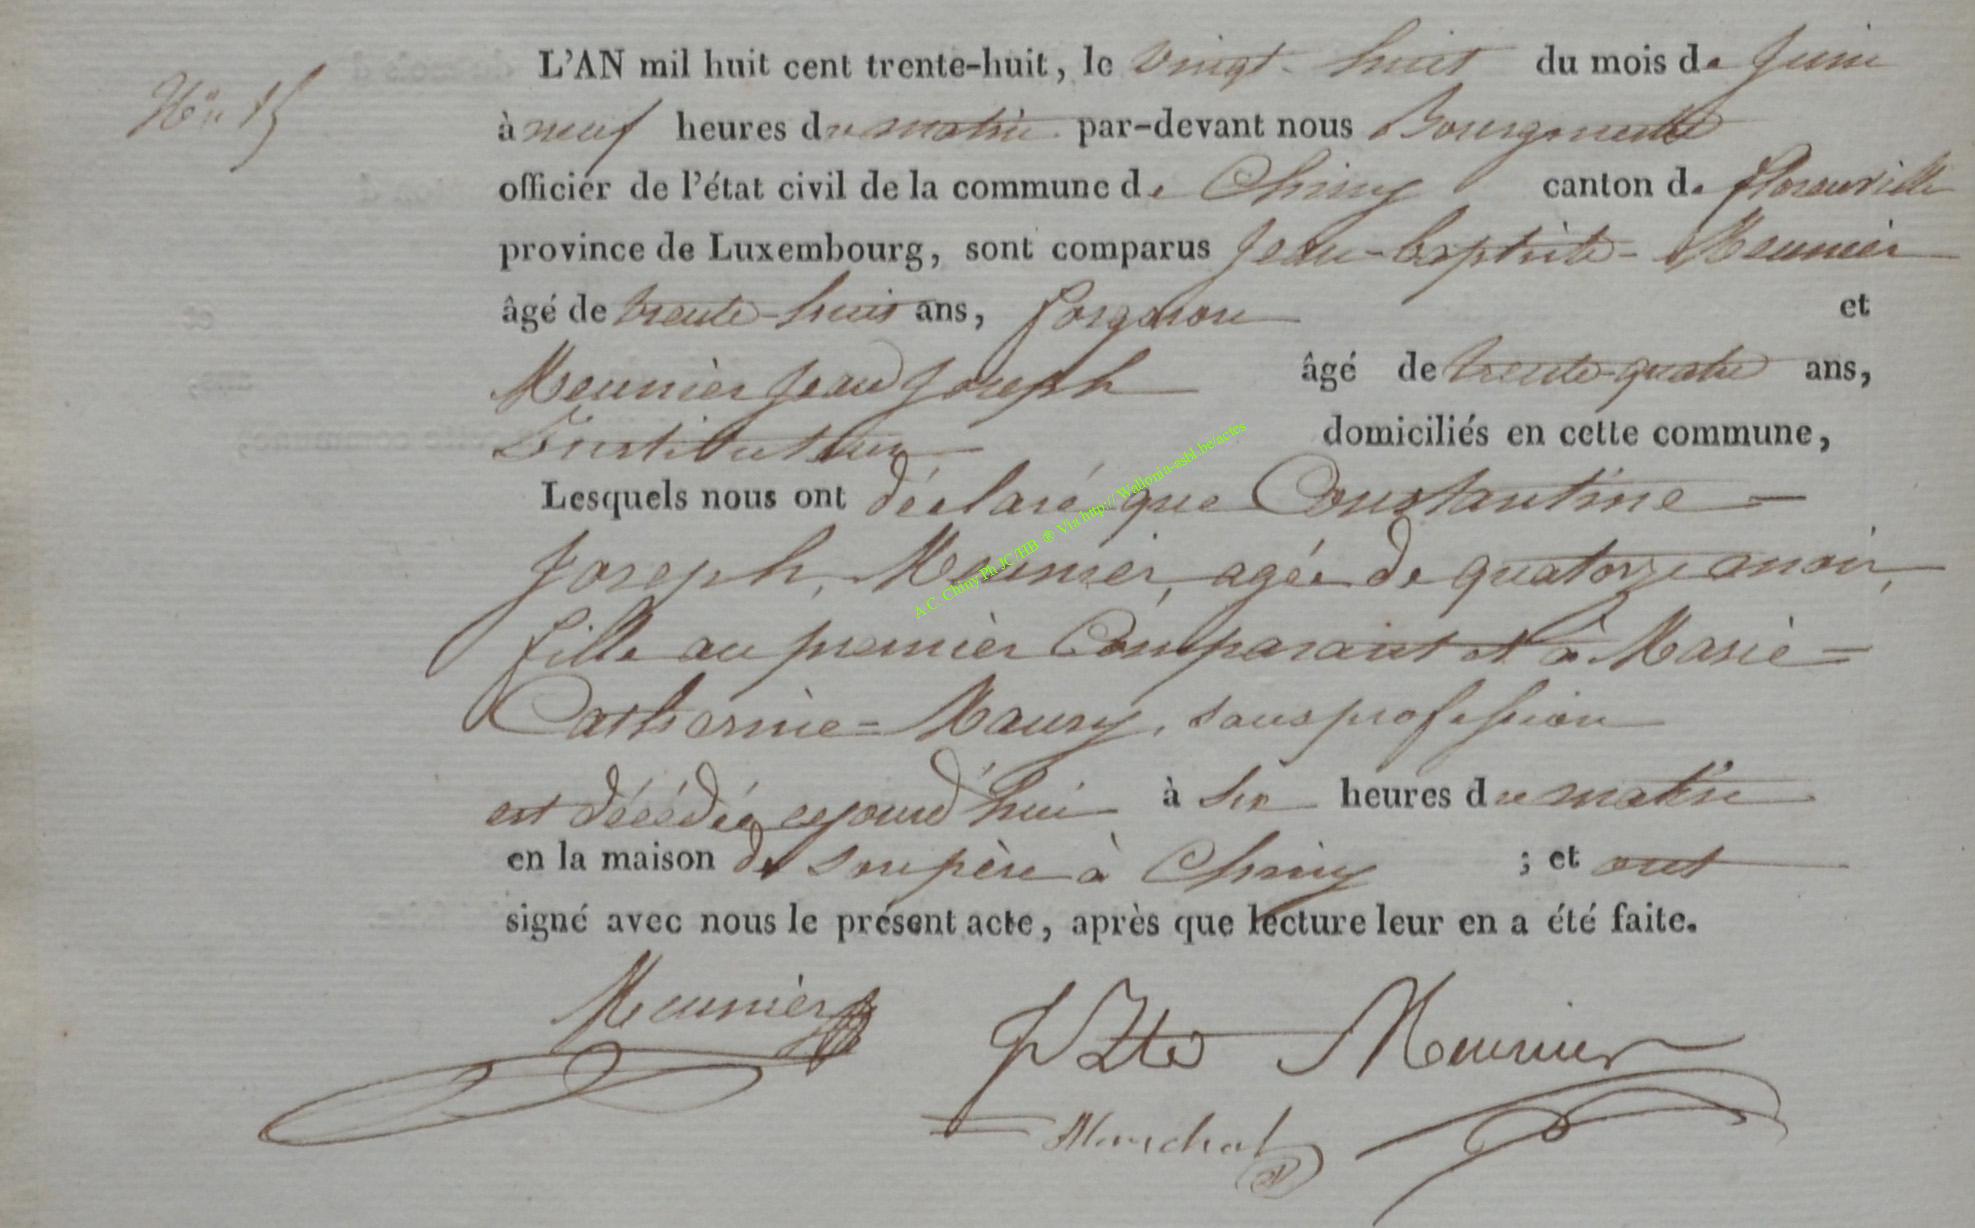 L'AN mil huit cent trente-huit, le vingt-huit du mois de Juin
N° 15
à neuf heures du matin par-devant nous Bourgmestre
officier de l'état civil de la commune de Chiny canton de florenville
province de Luxembourg, sont comparus Jean-baptiste-Meunier
âgé de trente-huit ans, forgeron et
Meunier Jean Joseph âgé de trente-quatre ans,
Instituteur domiciliés en cette commune,
Lesquels nous ont déclaré que Constantine-
Joseph, Meunier, agée de quatorze mois,
fille au premier Comparant et à Marie=
Catherine=Maury, sans profession
est décédée cejourd'hui à six heures du matin
en la maison de son père à Chiny ; et ont
signé avec nous le présent acte, après que lecture leur en a été faite.
Meunier J Bte Meunier
Marechal
A.C. Chiny Ph JC /HB ® Via http:// Wallonia-asbl.be/actes